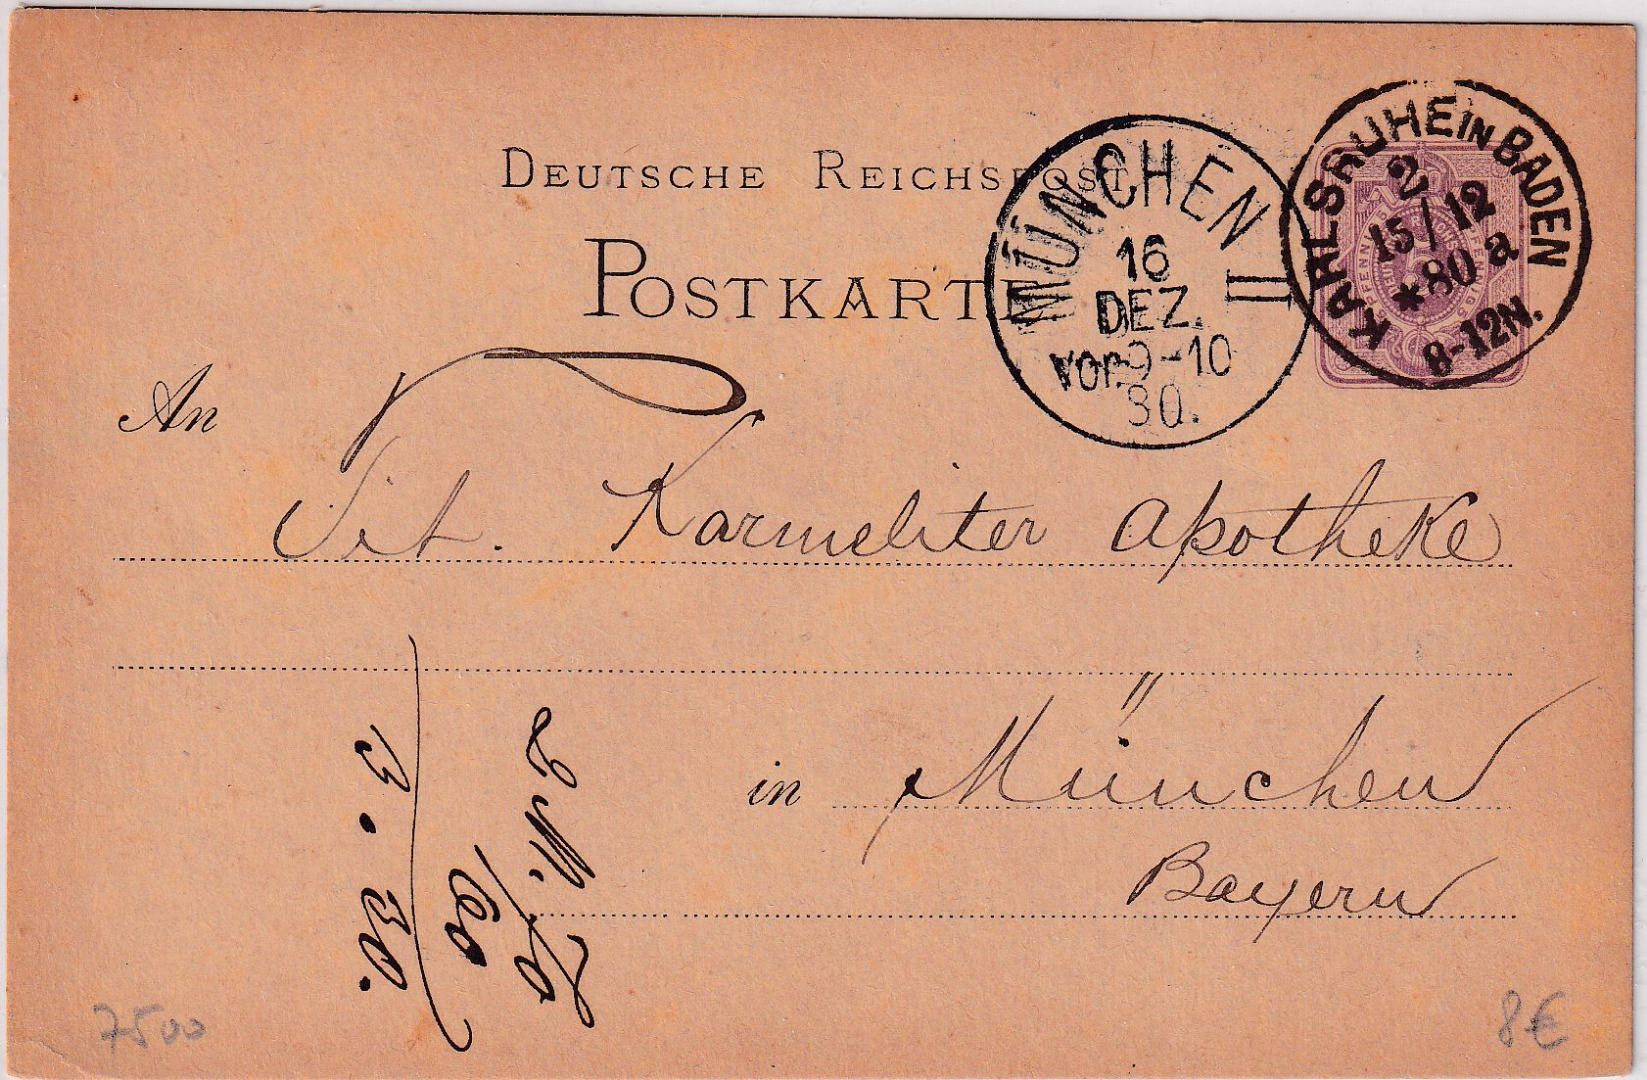 DEUTSCHE REICHSPOST
POSTKARTE
MÜNCHEN II
16
DEZ.
VOR 9-10
80.
KARLSRUHE IN BADEN
2
15/12
*80 a
8-12N.
An
Tit. Karmeliter Apotheke
in München
Bayern
2 M. 70
60
3. 30.
7500
8€